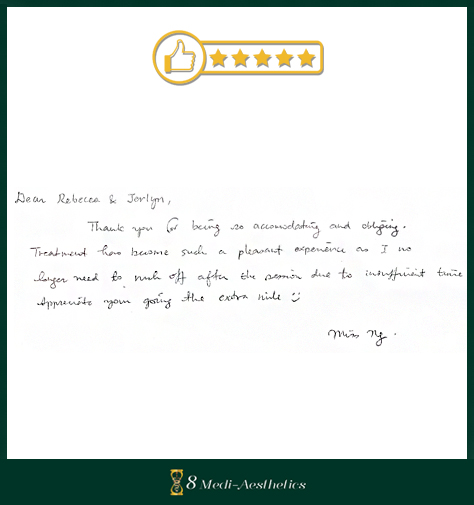 Dear Rebecca & Jerlyn,
Thank you for being so accomodating and obliging.
Treatment has become such a pleasant experience as I no
longer need to rush off after the session due to insufficient time
Appreciate your going the extra mile :)
Miss Ng.
8 Medi-Aesthetics